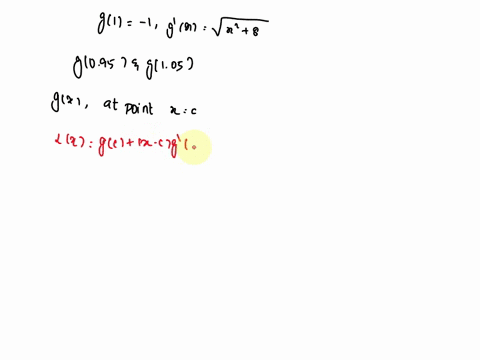 g(1) = -1, g'(x) = √(x²+8)
g(0.95) & g(1.05)
g(x), at point x = c
L(x) = g(c) + (x-c) g'(